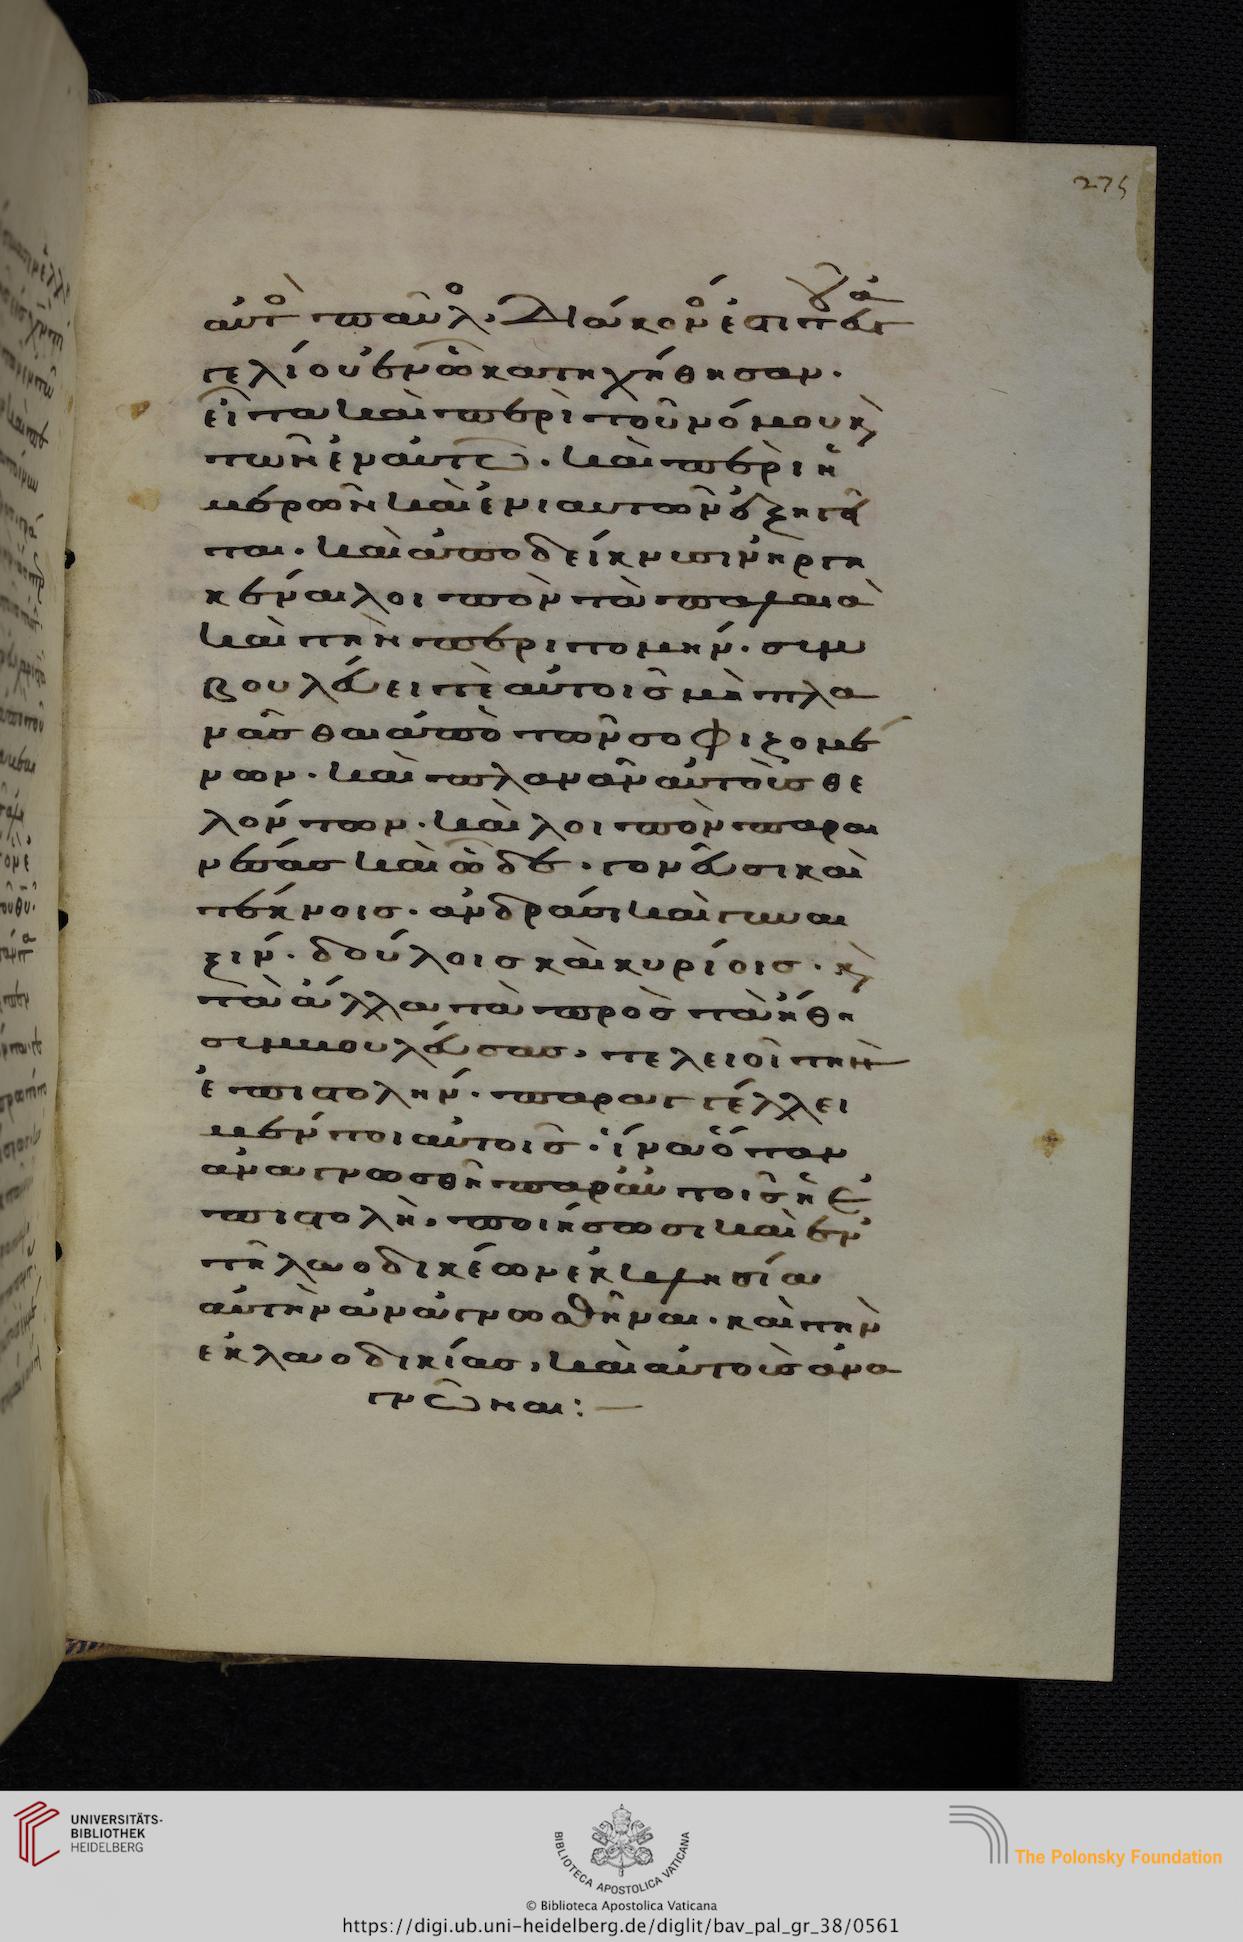 275
αὐτὸ παῦλο. Διάκονο ἐστι τοῦ εὐαγ
γελίου ἐν ᾧ κατηχήθησαν.
εἶτα καὶ περὶ τοῦ νόμου κ
τῶν ἐν αὐτῶ. καὶ περὶ ἡ
μερῶν καὶ ἐνιαυτῶν ἐζητεῖ
το. καὶ ἀποδείκνυσιν ἠργη
κέναι λοιπὸν τὰ παλαιὰ
καὶ τὴν περιτομήν. συμ
βουλεύει τὲ αὐτοῖς μὴ πλα
νᾶσθαι ἀπὸ τῶν σοφιζομέ
νων. καὶ πλανᾶν αὐτοὺς θε
λόντων. καὶ λοιπὸν παραι
νέσας καὶ ὧδε. γονεῦσι καὶ
τέκνοις. ἀνδράσι καὶ γυναι
ξίν. δούλοις καὶ κυρίοις. κ
τὰ ἄλλα τὰ πρὸς τὰ ἤθη
συμβουλεύσας, τελειοῖ τὴν
ἐπιστολήν. παραγγέλλει
μέντοι αὐτοῖς. ἵνα ὅταν
ἀναγνωσθῆ παρ' αὐτοῖς ἡ ἐ
πιστολὴ, ποιήσωσι καὶ ἐν
τῆ λαοδικέων ἐκκλησία
αὐτὴν ἀναγνωσθῆναι. καὶ τὴν
ἐκ λαοδικίας, καὶ αὐτοὺς ἀνα
γνῶναι:
UNIVERSITÄTS-
BIBLIOTHEK
HEIDELBERG
BIBLIOTECA APOSTOLICA VATICANA
The Polonsky Foundation
© Biblioteca Apostolica Vaticana
https://digi.ub.uni-heidelberg.de/diglit/bav_pal_gr_38/0561